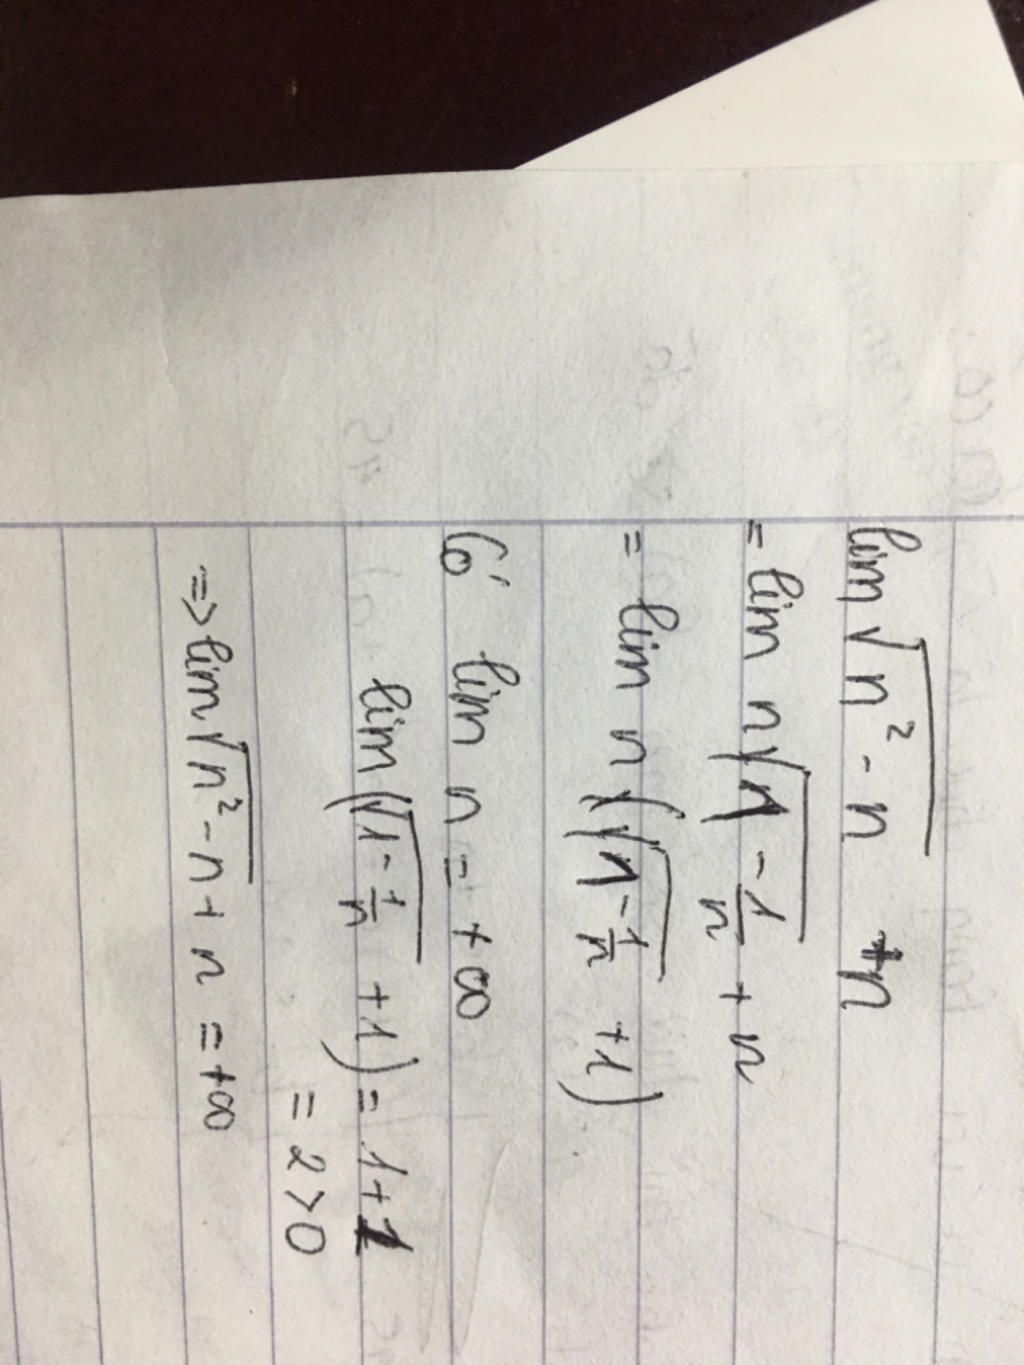 lim √(n² - n) + n
= lim n√(1 - 1/n) + n
= lim n(√(1 - 1/n) + 1)
Có lim n = +∞
lim (√(1 - 1/n) + 1) = 1+1
= 2 > 0
=> lim √(n² - n) + n = +∞